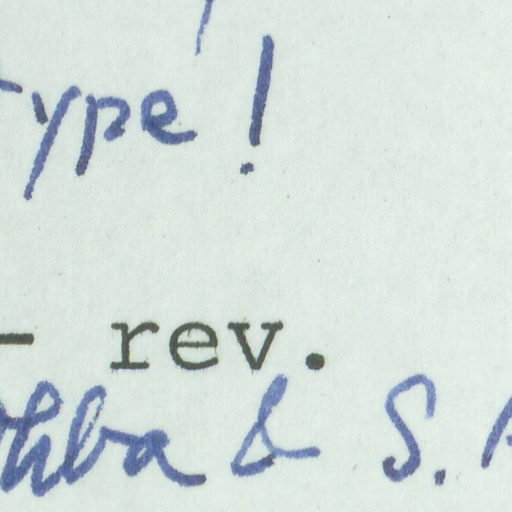 type!
- rev.
Ohba & S.